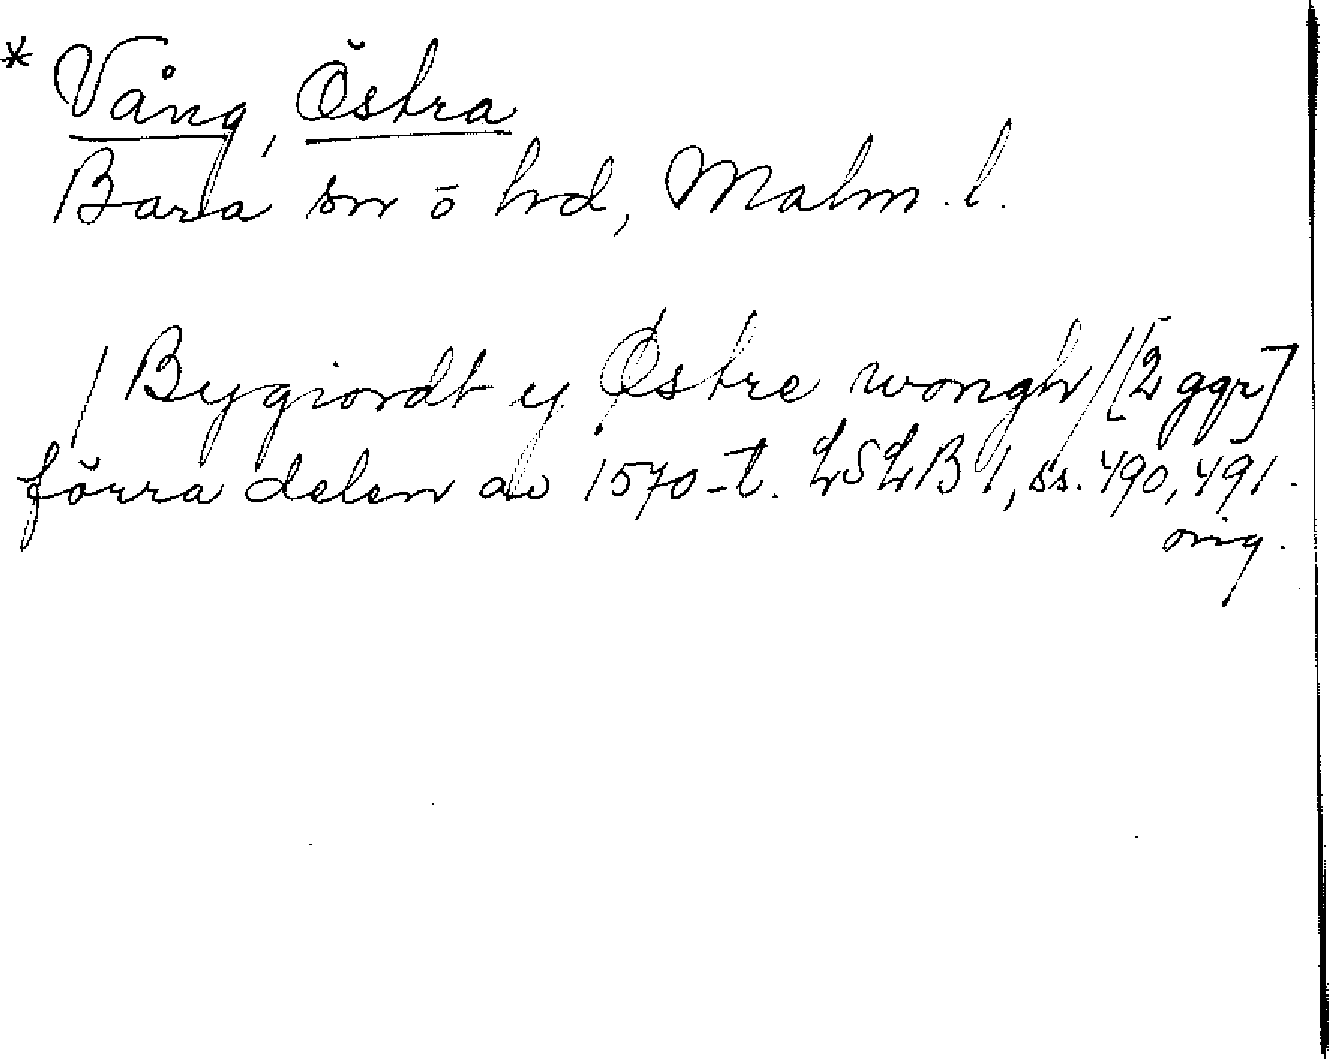 * Vång, Östra
Bara sn o hd, Malm. l.
/Bygiordt y Østre wongh/[2 ggr]
förra delen av 1570-t. LSLB 1, ss. 490, 491.
orig.